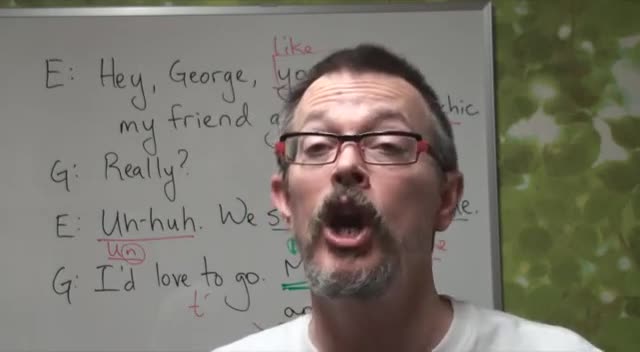 like
E: Hey, George,
my friend
G: Really?
E: Uh-huh. We
un
G: I'd love to go.
t